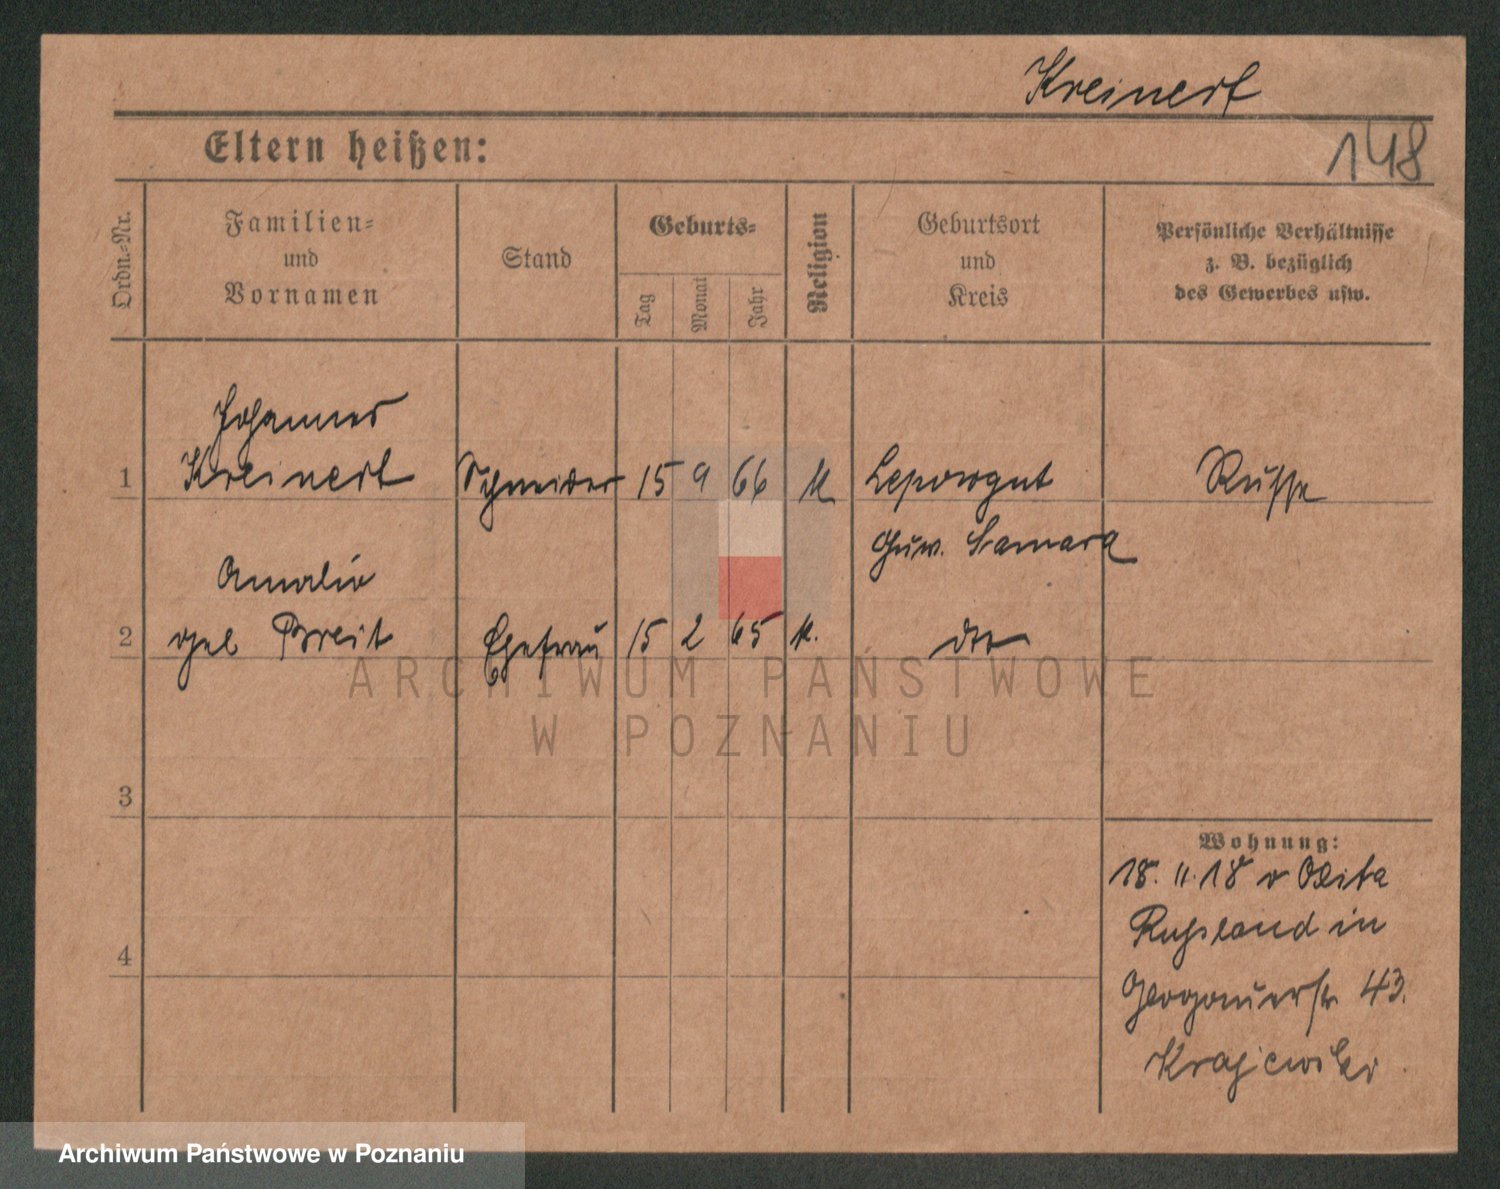 Kreinert
148
Eltern heißen:
Ordn.-Nr.
Familien-
und
Vornamen
Stand
Geburts-
Tag
Monat
Jahr
Religion
Geburtsort
und
Kreis
Persönliche Verhältnisse
z. B. bezüglich
des Gewerbes usw.
Johannes
1 Kreinert Schneider 15 9 66 K Russe
Guv. Samara
Amalie
2 geb Breit Ehefrau 15 2 65 K. dto
3
Wohnung:
18. 11. 18 v Olita
Russland in
4
Glogauerstr 43.
Krajewski
ARCHIWUM PAŃSTWOWE
W POZNANIU
Archiwum Państwowe w Poznaniu